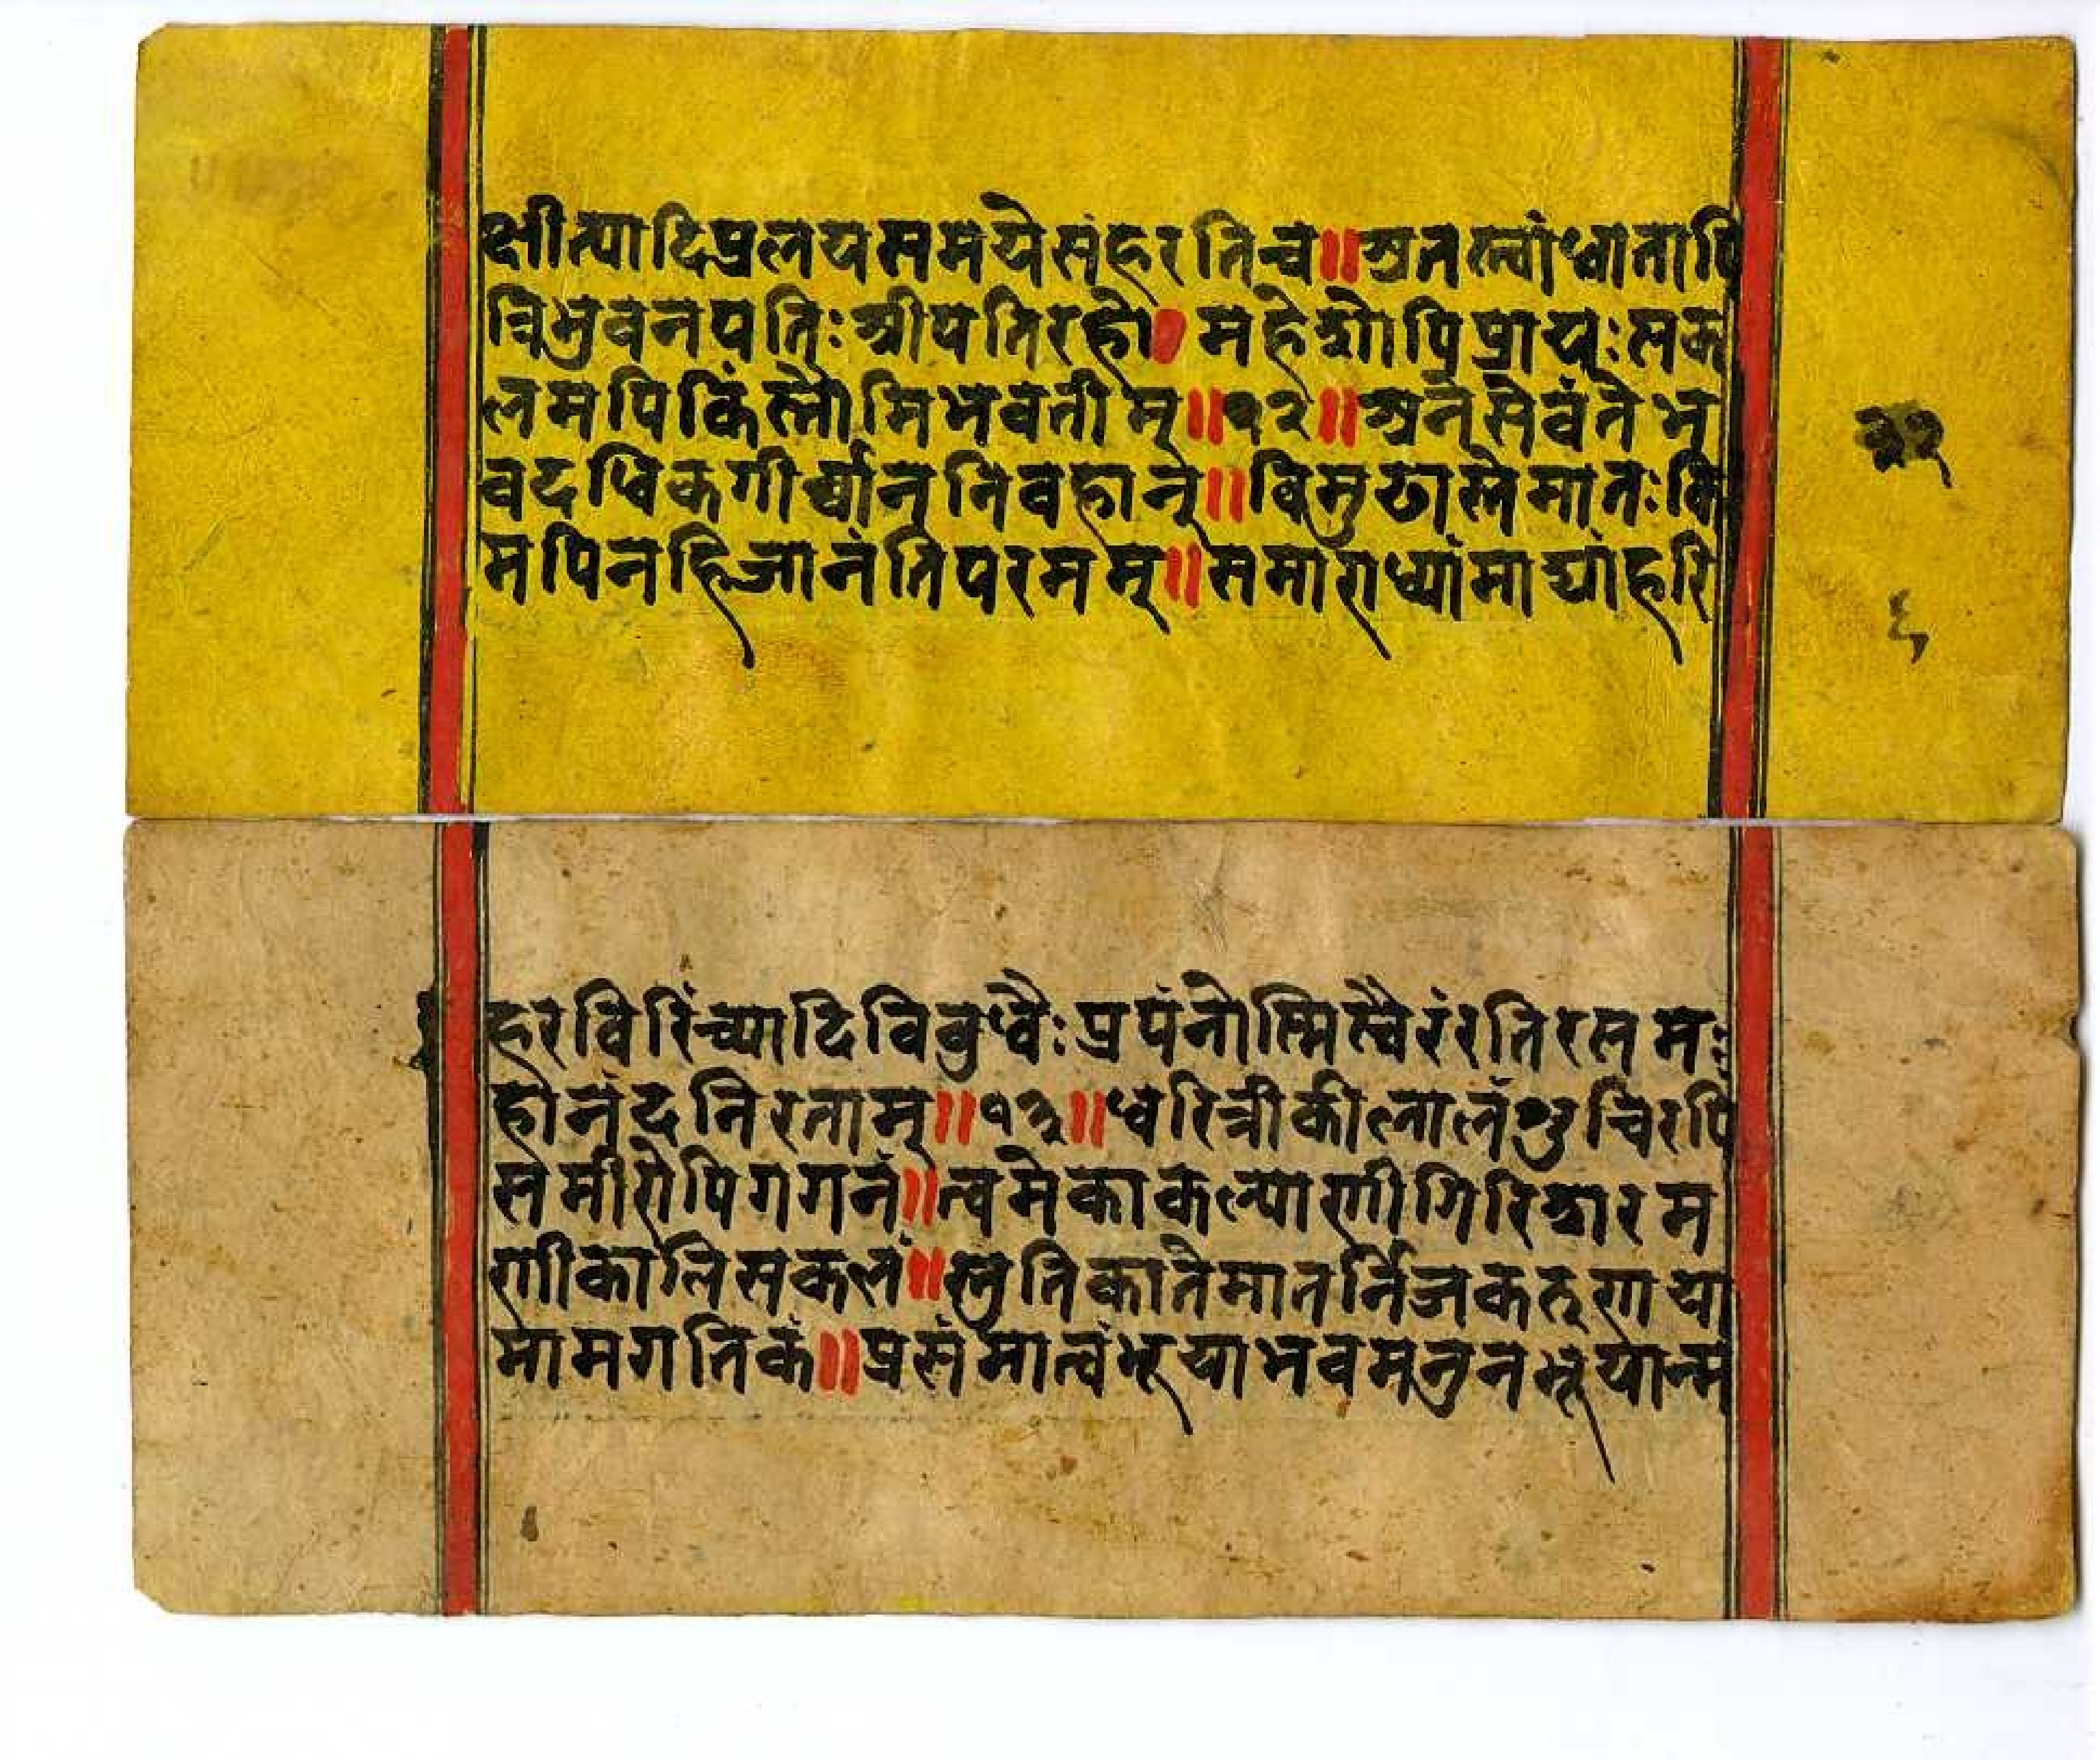 क्षीत्यादिप्रलयसमयेसंहरतिच॥अतस्त्वांधातापि
त्रिभुवनपतिःश्रीपतिरहो।महेशोपिप्रायःसक
लमपिकिंस्तौमिभवतीम्॥१२॥अनेसेवंतेभ
वदधिकगीर्व्वानन्निवहान्॥विमुढास्तेमातःकि
मपिनहिजानंतिपरमम्॥समाराध्यांमाद्यांहरि
हरविरिंच्यादिविवुधैःप्रपंनोस्मिस्वैरंरतिरसम
हानंदनिरताम्॥१३॥धरित्रीकीलालंशुचिरपि
समीरोपिगगनं॥त्वमेकाकल्याणीगिरिशरम
णीकालिसकलं॥स्तुतिकातेमातर्निजकरुणया
मामगतिकं॥प्रसंमात्वंभूयाभवमनुनभूयान्म